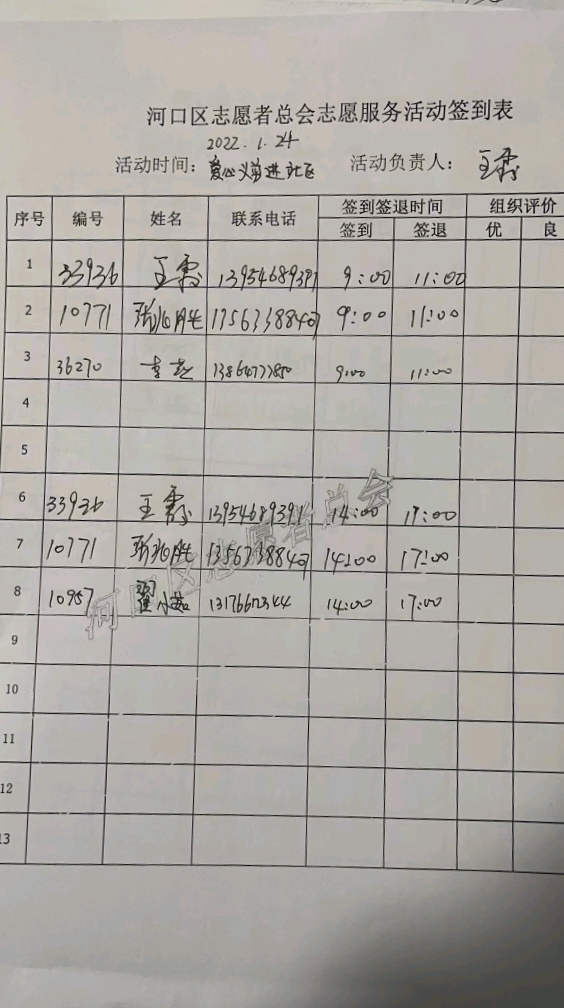 河口区志愿者总会志愿服务活动签到表
2022.1.24
活动时间：爱心义前进社区 活动负责人：王霞
序号 编号 姓名 联系电话 签到签退时间 组织评价
签到 签退 优 良
1 33936 王霞 13954689391 9:00 11:00
2 10771 9:00 11:00
3 36270 9:00 11:00
4
5
6 33936 王霞 13954689391 14:00 17:00
7 10771 14:00 17:00
8 10957 14:00 17:00
9
10
11
12
13
河口区志愿者总会